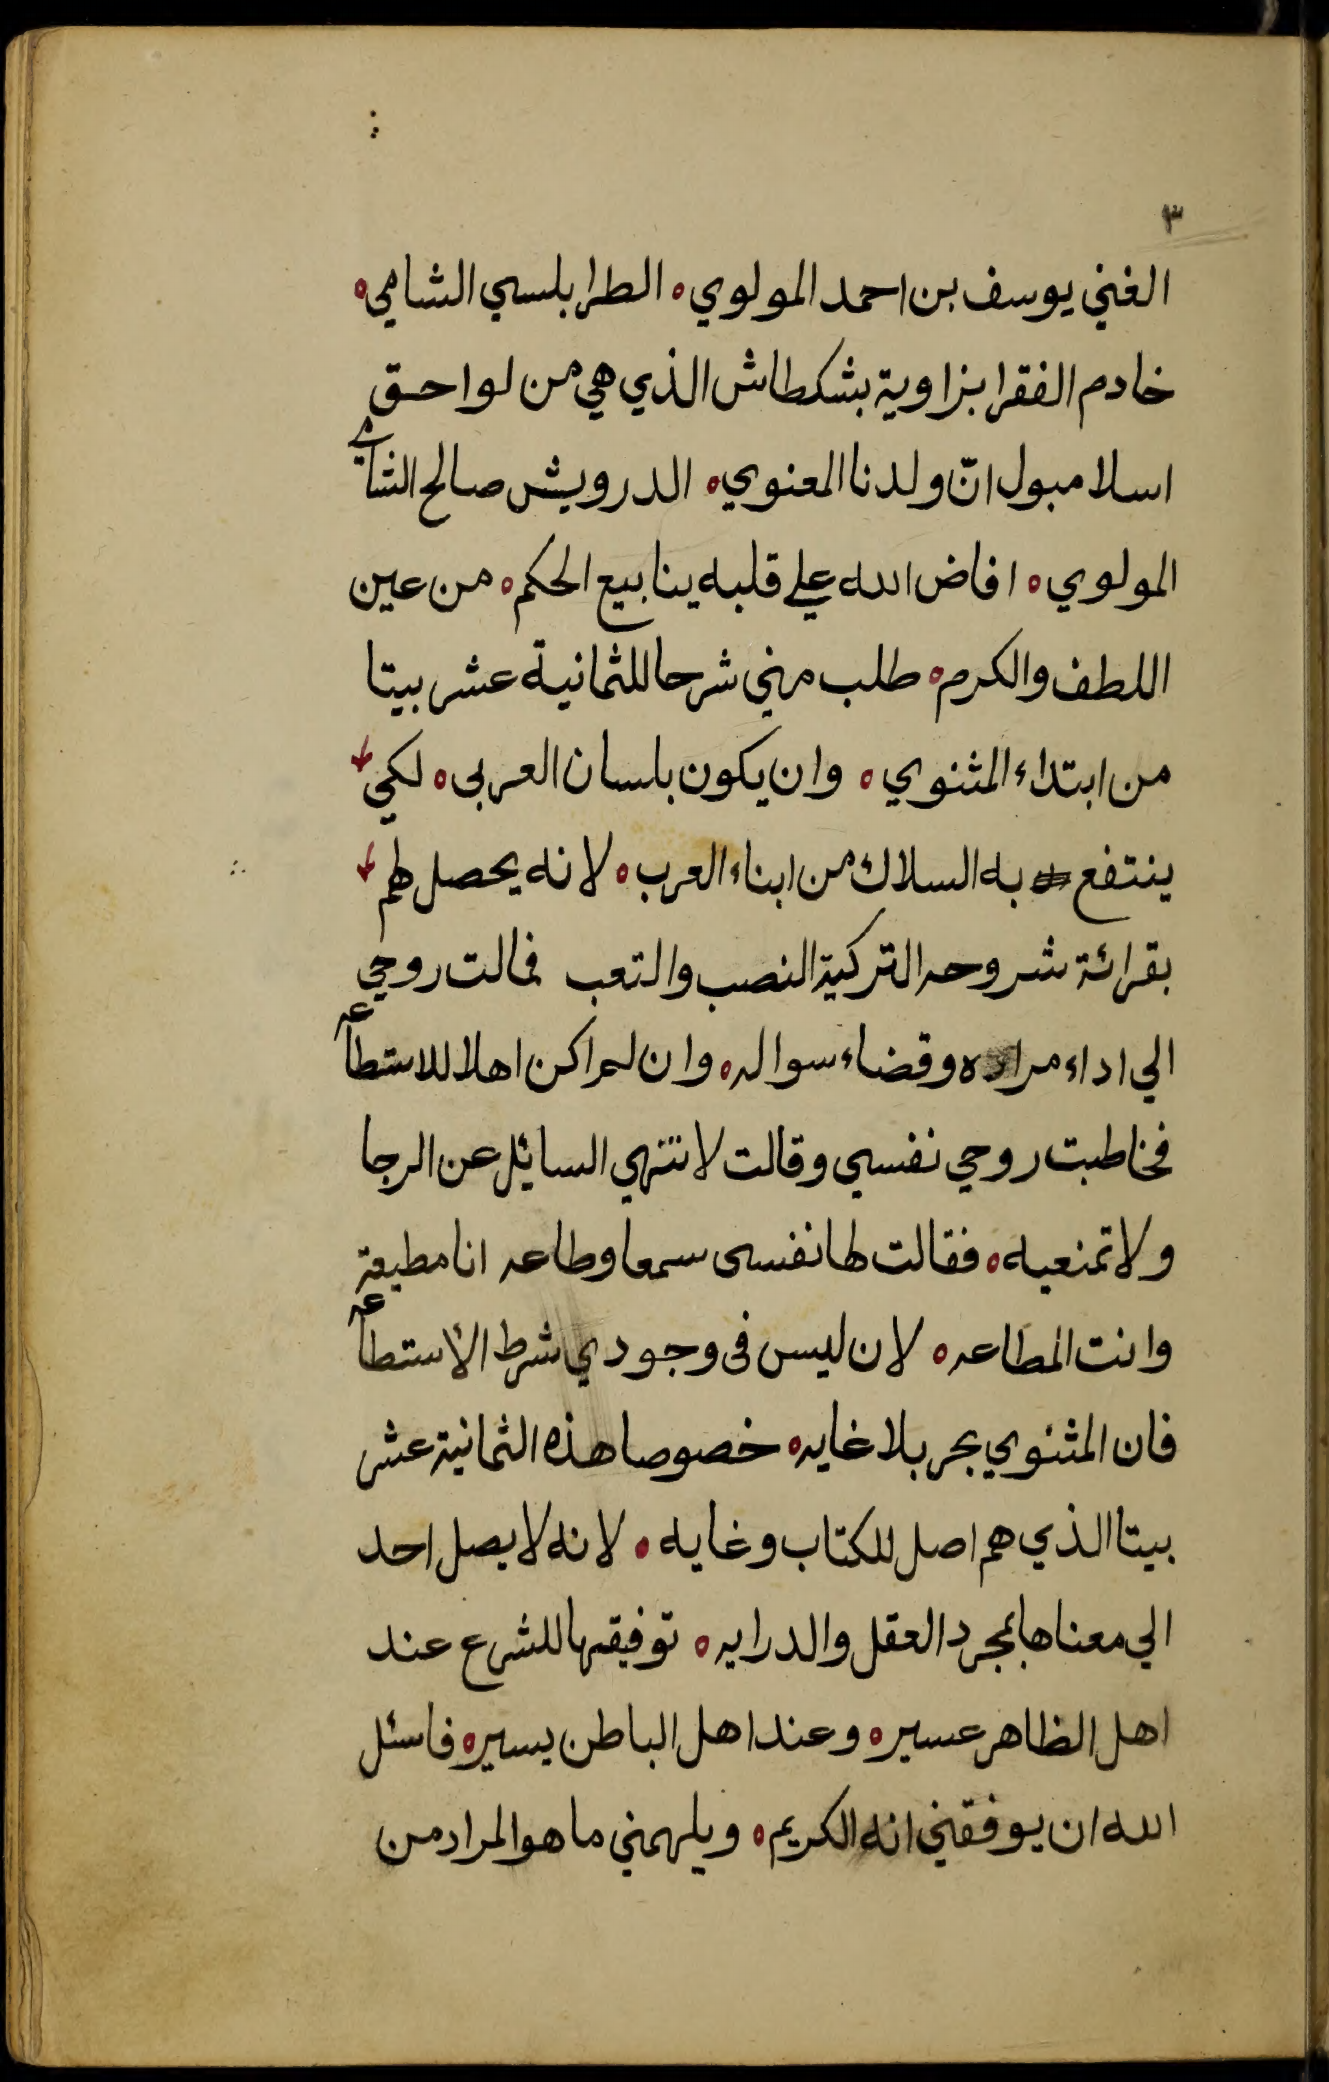 ٣
الغني يوسف بن احمد المولوي ه الطرابلسي الشامي ه
خادم الفقرا بزاوية بشكطاش الذي هي من لواحق
اسلامبول انّ ولدنا المعنوي ه الدرويش صالح الشامي
المولوي ه افاض الله علي قلبه ينابيع الحكم ه من عين
اللطف والكرم ه طلب مني شرحا للثمانية عشر بيتا
من ابتداء المثنوي ه وان يكون بلسان العربى ه لكي
ينتفع به السلاك من ابناء العرب ه لانه يحصل لهم
بقرائة شروحه التركية النصب والتعب فمالت روحي
الي اداء مراده وقضاء سواله ه وان لم اكن اهلا للاستطاعه
فخاطبت روحي نفسي وقالت لا تنتهي السايئل عن الرجا
ولا تمنعيه ه فقالت لها نفسى سمعا وطاعه انا مطيعة
وانت المطاعه ه لان ليس فى وجودي شرط الاستطاعه
فان المثنوي بحر بلا غايه ه خصوصا هذه الثمانية عشر
بيتا الذي هم اصل للكتاب وغايه ه لانه لا يصل احد
الي معناها بمجرد العقل والدرايه ه توفيقها للشرع عند
اهل الظاهر عسير ه وعند اهل الباطن يسير ه فاسئل
الله ان يوفقني انه الكريم ه ويلهمني ما هو المراد من